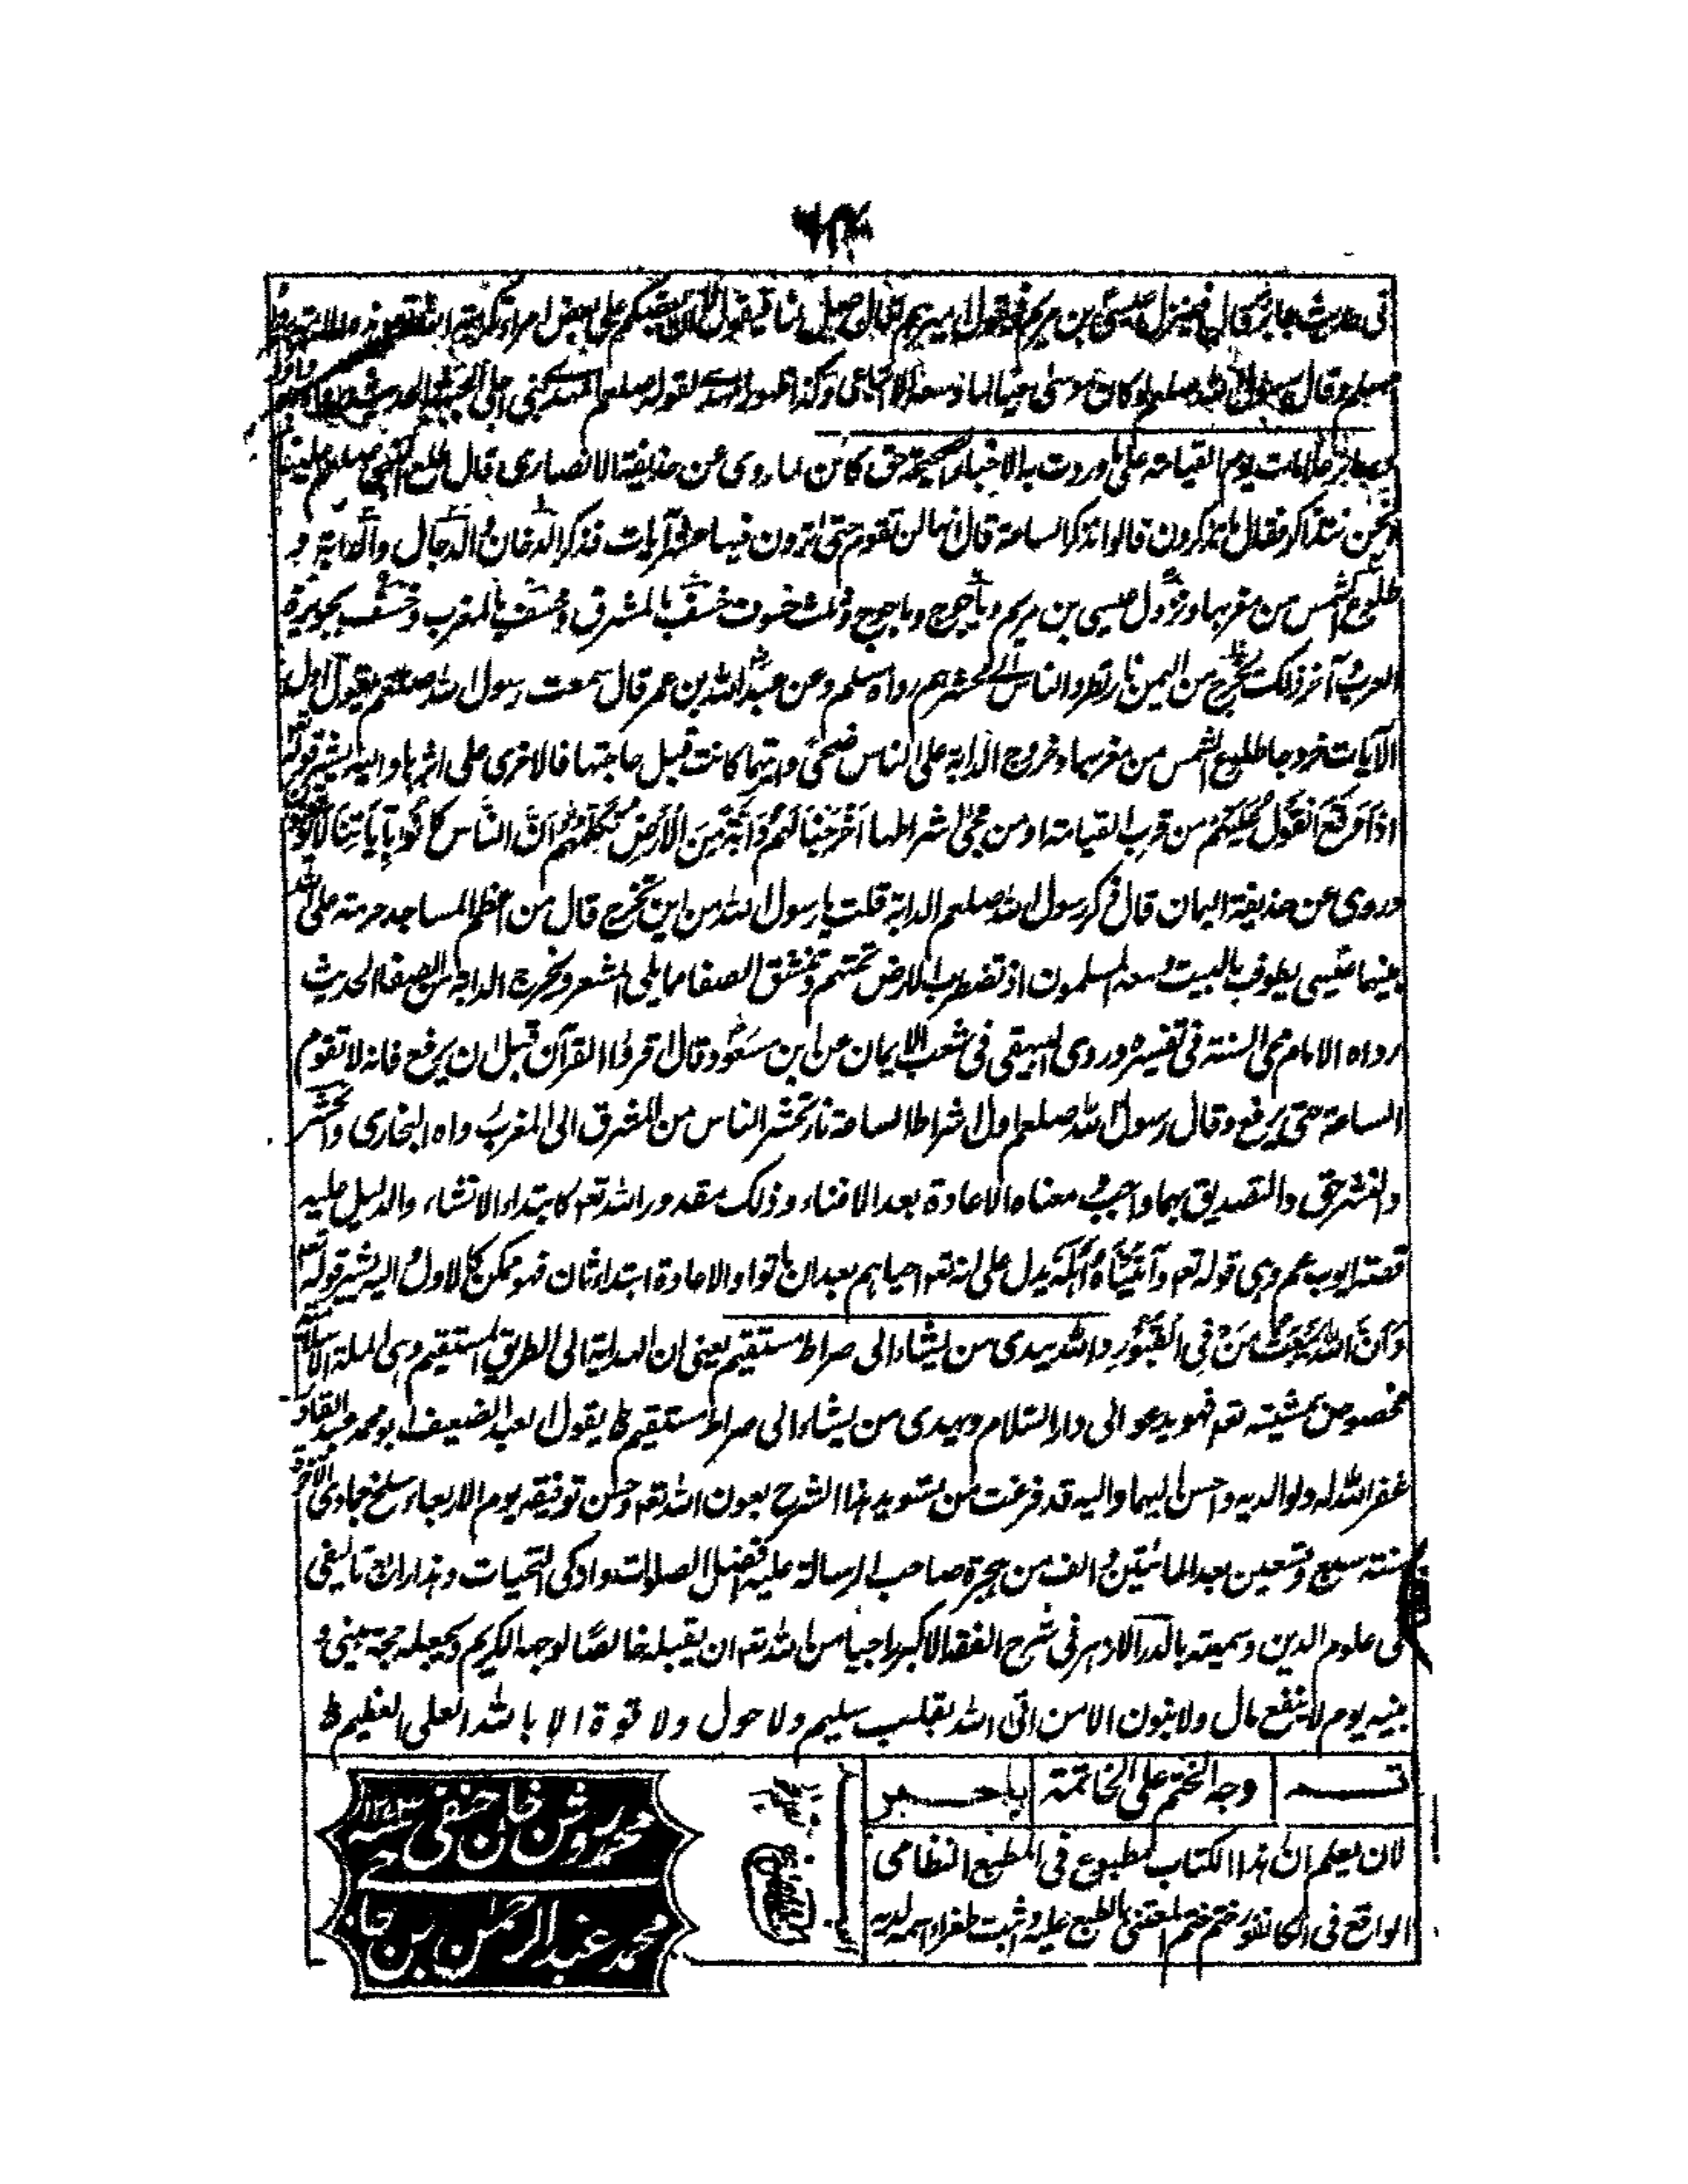 فی حدیث جابر قال فینزل عیسی بن مریم فیقول امیرهم تعال صل لنا فیقول لا ان بعضکم علی بعض امراء تکرمة الله
مسلم وقال رسول الله صلعم لو کان موسی حیا لما وسعه الا اتباعی وکذا ظهور المهدی لقوله صلعم المهدی منی اجلی الجبهة الحدیث
وسائر علامات یوم القیامة علی ما وردت به الاخبار الصحیحة حق کائن لما روی عن حذیفة الانصاری قال طلع النبی صلعم علینا
ونحن نتذاکر فقال ما تذکرون قالوا نذکر الساعة قال انها لن تقوم حتی ترون فیها عشر آیات فذکر الدخان والدجال والدابة و
طلوع الشمس من مغربها ونزول عیسی بن مریم ویاجوج وماجوج وثلث خسوف خسف بالمشرق وخسف بالمغرب وخسف بجزیرة
العرب وآخر ذلک نار تخرج من الیمن تطرد الناس الی محشرهم رواه مسلم وعن عبد الله بن عمر قال سمعت رسول الله صلعم یقول اول
الآیات خروجا طلوع الشمس من مغربها وخروج الدابة علی الناس ضحی وایتهما کانت قبل صاحبتها فالاخری علی اثرها والیه یشیر قوله تعالی
اذا وَقَعَ القَوْلُ عَلَیْهِمْ من قرب القیامة او من مجیٔ اشراطها اَخْرَجْنَا لَهُمْ دَابَّةً مِّنَ الْاَرْضِ تُکَلِّمُهُمْ اَنَّ النَّاسَ کَانُوْا بِاٰیَاتِنَا لَا یُوْقِنُوْنَ
وروی عن حذیفة الیمان قال ذکر رسول الله صلعم الدابة قلت یا رسول الله من این تخرج قال من اعظم المساجد حرمة علی الله
بینما عیسی یطوف بالبیت ومعه المسلمون اذ تضطرب الارض تحتهم وتنشق الصفا مما یلی المشعر وتخرج الدابة من الصفا الحدیث
رواه الامام محی السنة فی تفسیره وروی البیهقی فی شعب الایمان عن ابن مسعود قال اقرءوا القرآن قبل ان یرفع فانه لا تقوم
الساعة حتی یرفع وقال رسول الله صلعم اول اشراط الساعة نار تحشر الناس من المشرق الی المغرب رواه البخاری والحشر
والنشر حق والتصدیق بهما واجب ومعناه الاعادة بعد الافناء وذلک مقدور الله تعم کابتداء الانشاء والدلیل علیه
قصة ایوب عم وهی قوله تعم وَآتَیْنَاهُ اَهْلَهُ یدل علی انه تعم احیاهم بعد ان ماتوا والاعادة ابتداء ثان فهو ممکن کالاول والیه یشیر قوله تعالی
وَاَنَّ اللهَ یَبْعَثُ مَنْ فِی القُبُوْرِ والله یهدی من یشاء الی صراط مستقیم یعنی ان الهدایة الی الطریق المستقیم وهی الملة الاسلامیة
مخصوص بمشیته تعم فهو یدعو الی دار السلام ویهدی من یشاء الی صراط مستقیم ط یقول العبد الضعیف ابو محمد عبد القادر
غفر الله له ولوالدیه واحسن الیهما والیه قد فرغت من تسوید هذا الشرح بعون الله تعم وحسن توفیقه یوم الاربعاء سلخ جمادی الآخر
سنة سبع وتسعین بعد المائتین والف من هجرة صاحب الرسالة علیه افضل الصلوات وازکی التحیات وهذا رابع تالیفی
فی علوم الدین وسمیته بالدر الازهر فی شرح الفقه الاکبر راجیا من الله تعم ان یقبله خالصًا لوجهه الکریم ویجعله حجة بینی و
بینه یوم لا ینفع مال ولا بنون الا من اتی الله بقلب سلیم ولا حول ولا قوة الا بالله العلی العظیم ط
وجه الختم علی الخاتمة
لان یعلم ان هذا الکتاب مطبوع فی المطبع النظامی
الواقع فی الکانفور ختم ختم المعتنی بالطبع علیه واثبت طغراء اسمه لدیه
محمد روشن خان حنفی
محمد عبد الرحمن بن حاجی